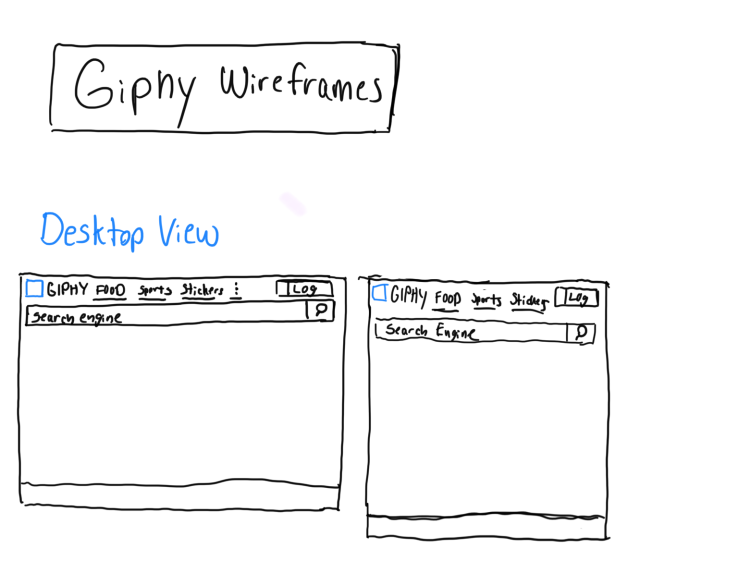 Giphy Wireframes
Desktop View
GIPHY FOOD Sports Stickers ⋮ Log
Search engine
GIPHY FOOD Sports Sticker Log
Search Engine